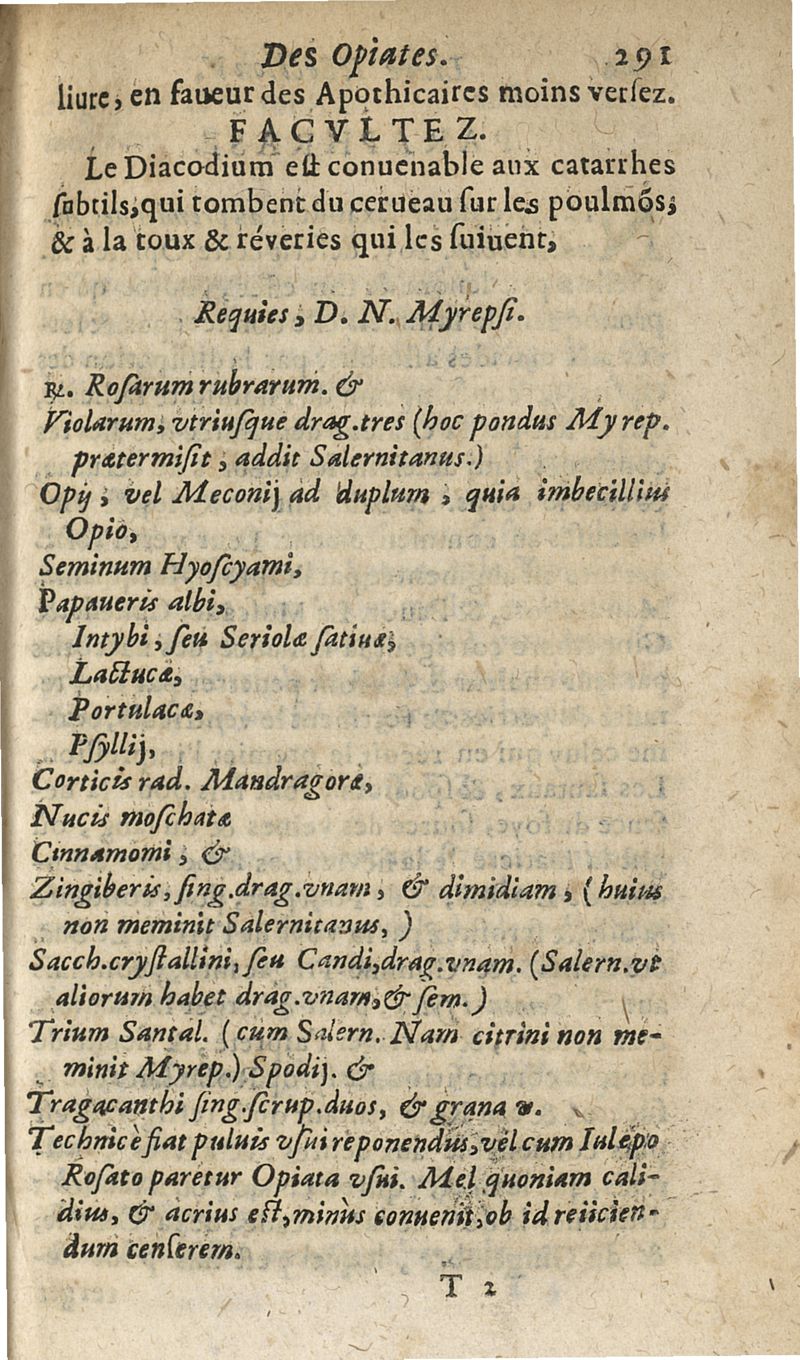 Des Opiates. 291
liure, en faueur des Apothicaires moins verſez.
FACVLTEZ.
Le Diacodium eſt conuenable aux catarrhes
ſubtils, qui tombent du cerueau ſur les poulmõs;
& à la toux & réveries qui les ſuiuent,
Requies, D. N. Myrepſi.
℞. Roſarum rubrarum. &
Violarum, vtriuſque drag. tres (hoc pondus Myrep.
prætermiſit, addit Salernitanus.)
Opij, vel Meconij ad duplum, quia imbecillius
Opio,
Seminum Hyoſcyami,
Papaueris albi,
Intybi, ſeu Seriolæ ſatiuæ,
Lactucæ,
Portulacæ,
Pſyllij,
Corticis rad. Mandragoræ,
Nucis moſchatæ
Cinnamomi, &
Zingiberis, ſing. drag. vnam, & dimidiam, (huius
non meminit Salernitanus,)
Sacch. cryſtallini, ſeu Candi, drag. vnam. (Salern. vt
aliorum habet drag. vnam, & ſem.)
Trium Santal. (cum Salern. Nam citrini non me-
minit Myrep.) Spodij. &
Tragacanthi ſing. ſcrup. duos, & grana v.
Technicè fiat puluis vſui reponendus, vel cum Iulepo
Roſato paretur Opiata vſui. Mel quoniam cali-
dius, & acrius eſt, minùs conuenit, ob id reiicien-
dum cenſerem.
T 2